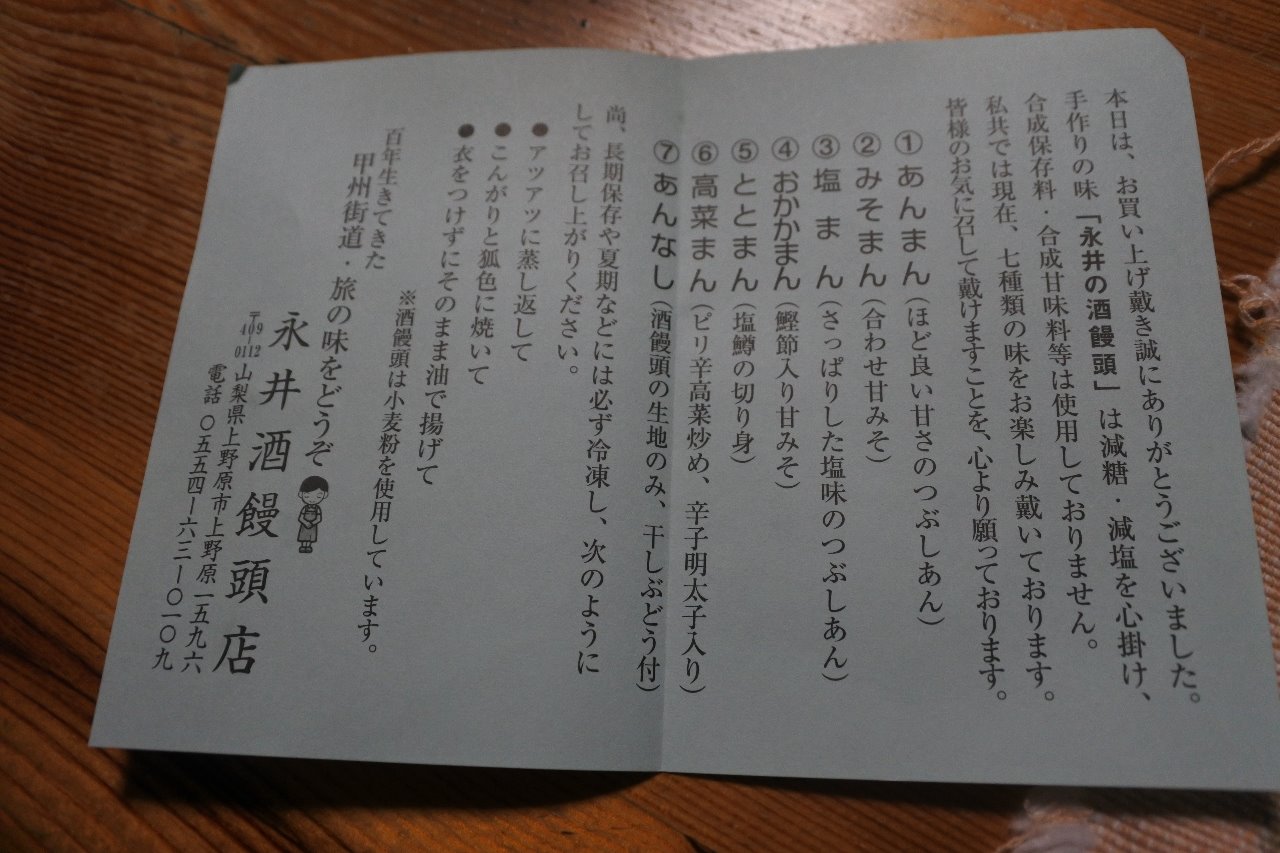 本日は、お買い上げ戴き誠にありがとうございました。
手作りの味「永井の酒饅頭」は減糖・減塩を心掛け、
合成保存料・合成甘味料等は使用しておりません。
私共では現在、七種類の味をお楽しみ戴いております。
皆様のお気に召して戴けますことを、心より願っております。
①あんまん(ほど良い甘さのつぶしあん)
②みそまん(合わせ甘みそ)
③塩まん(さっぱりした塩味のつぶしあん)
④おかかまん(鰹節入り甘みそ)
⑤ととまん(塩鱒の切り身)
⑥高菜まん(ピリ辛高菜炒め、辛子明太子入り)
⑦あんなし(酒饅頭の生地のみ、干しぶどう付)
尚、長期保存や夏期などには必ず冷凍し、次のように
してお召し上がりください。
●アツアツに蒸し返して
●こんがりと狐色に焼いて
●衣をつけずにそのまま油で揚げて
※酒饅頭は小麦粉を使用しています。
百年生きてきた
甲州街道・旅の味をどうぞ
永井酒饅頭店
〒409-0112 山梨県上野原市上野原一五九六
電話 〇五五四―六三―〇一〇九